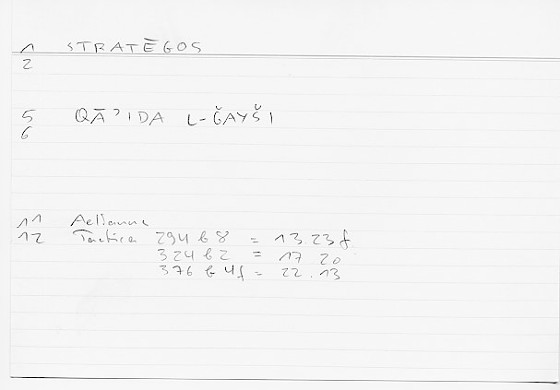 1 STRATĒGOS
2
5 QĀʾIDA L-ǦAYŠI
6
11 Aelianus
12 Tactica 294 b 8 = 13.23f
324 b 2 = 17 20
376 b 4f = 22.13